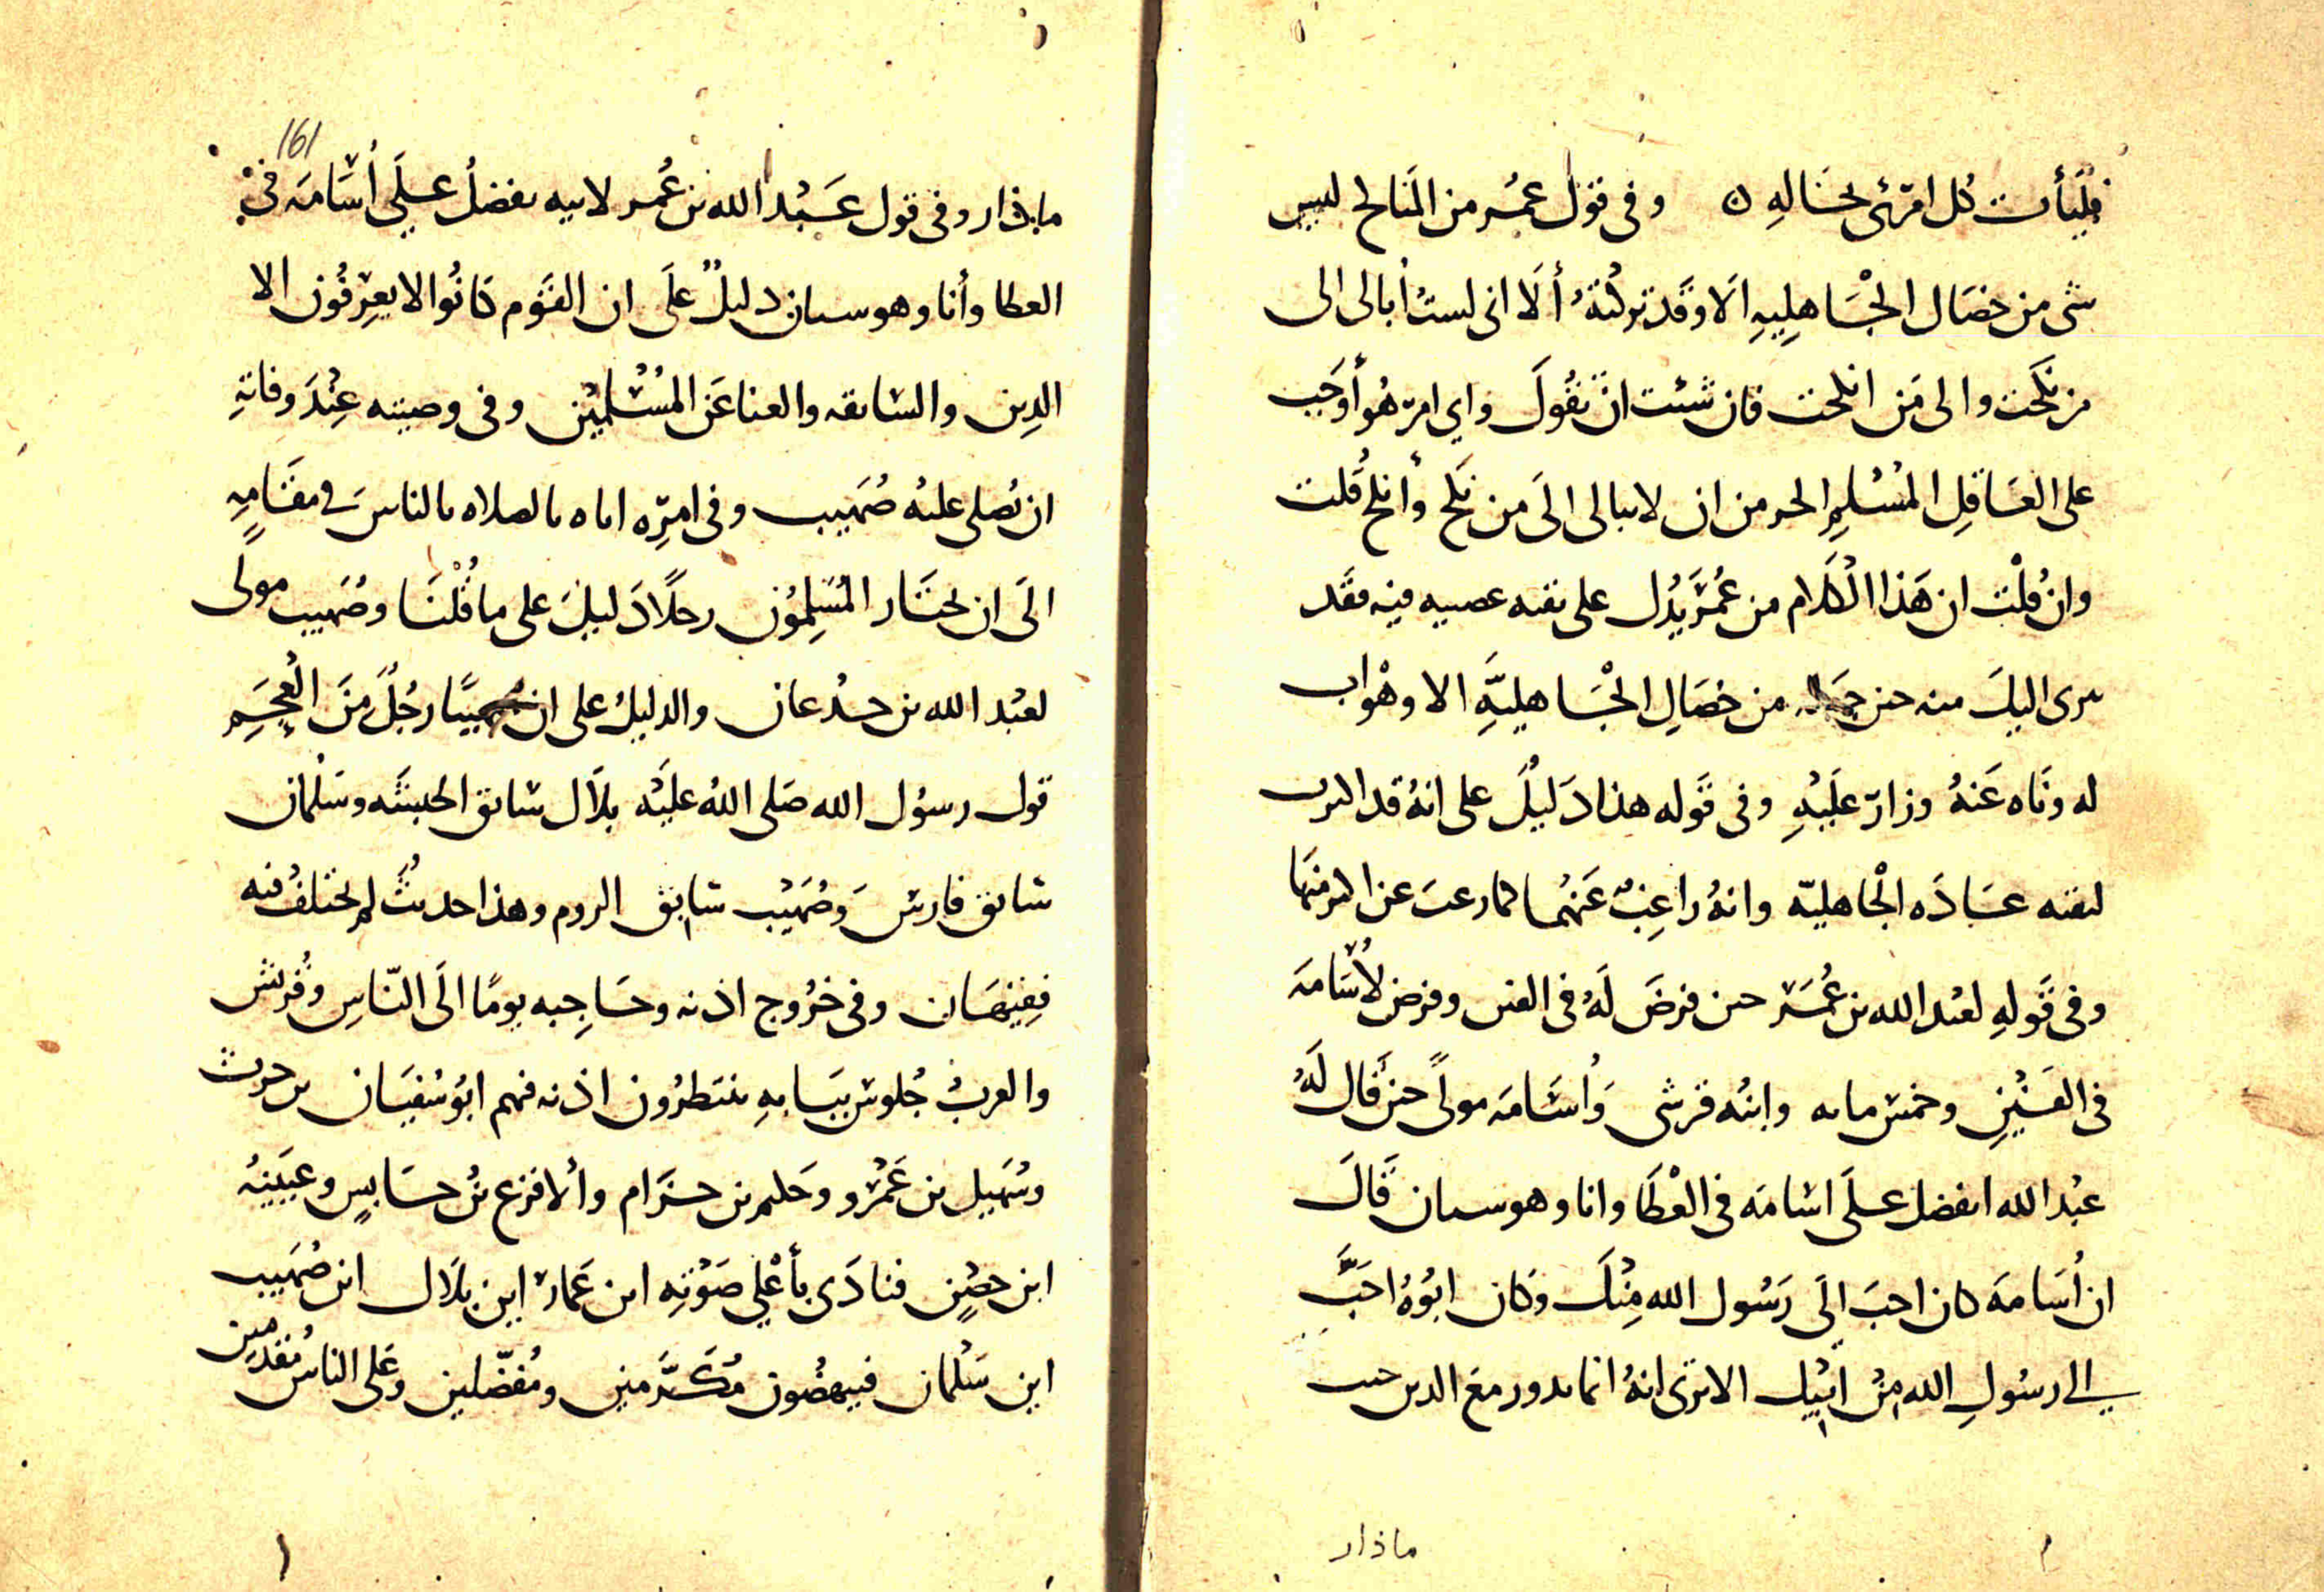 فليأت كل امرئ بخاله ٥ وفى قول عمر من المناكح ليس
شى من خصال الجاهليه الا وقد تركته ألا انى لست أبالى الى
من نكحت والى من انكحت فان شئت ان تقول واي امر هو أوجب
على العاقل المسلم الحر من ان لا يبالى الى من نكح وأنكح قلت
وان قلت ان هذا الكلام من عمر يدل على بقيه عصبيه فيه فقد
برى اليك منه حين من خصال الجاهلية الا وهو اب
له وناه عنه وزار عليه وفى قوله هذا دليل على انه قد
عباده الجاهلية وانه راغب عنهما كما رغب عن
وفى قوله لعبد الله بن عمر حين فرض له فى الفين وفرض لأسامة
فى الفين وخمس مايه وابنه قرشى وأسامه مولى حين قال له
عبد الله اتفضل على اسامه فى العطا وانا وهو سيان قال
ان أسامة كان احب الى رسول الله منك وكان ابوه احب
الى رسول الله من ابيك الا ترى انه انما يدور مع الدين حيث
ماذار
161
ماذار وفى قول عبد الله بن عمر لابيه تفضل على أسامه فى
العطا وأنا وهو سيان دليل على ان القوم كانوا لا يعرفون الا
الدين والسابقه والعنا عن المسلمين وفى وصيته عند وفاته
ان يصلى عليه صهيب وفى امره اياه بالصلاه بالناس فى مقامه
الى ان يختار المسلمون رجلا دليل على ما قلنا وصهيب مولى
لعبد الله بن جدعان والدليل على ان صهيبا رجل من العجم
قول رسول الله صلى الله عليه بلال سابق الحبشه وسلمان
سابق فارس وصهيب سابق الروم وهذا حديث لم يختلف فيه
فقيهان وفى خروج اذنه وحاجبه يوما الى الناس وقريش
والعرب جلوس ببابه ينتظرون اذنه فهم ابو سفيان بن حرث
وسهيل بن عمرو وحكيم بن حزام وألاقرع بن حابس وعيينه
ابن حصن فنادى بأعلي صوته اين عمار اين بلال اين صهيب
اين سلمان فينهضون مكرمين ومفضلين وعلى الناس مقدمين